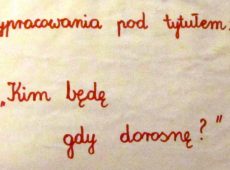 ypracowania pod tytułem
„Kim będę
gdy dorosnę?"